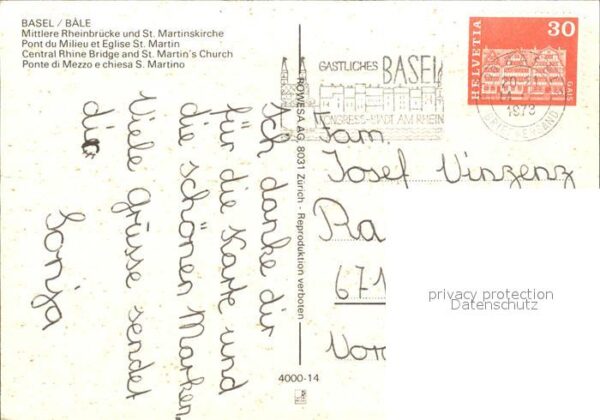 BASEL / BÂLE
Mittlere Rheinbrücke und St. Martinskirche
Pont du Milieu et Eglise St. Martin
Central Rhine Bridge and St. Martin's Church
Ponte di Mezzo e chiesa S. Martino
Ich danke dir
für die Karte und
die schönen Marken
Viele grüsse sendet
dir
Sonja
ROWESA AG, 8031 Zürich - Reproduktion verboten
4000-14
GASTLICHES BASEL
KONGRESS-STADT AM RHEIN
BASEL
1973
BRIEFVERSAND
HELVETIA
30
GAIS
Fam.
Josef Vinzenz
Ra
671
Vor
privacy protection
Datenschutz